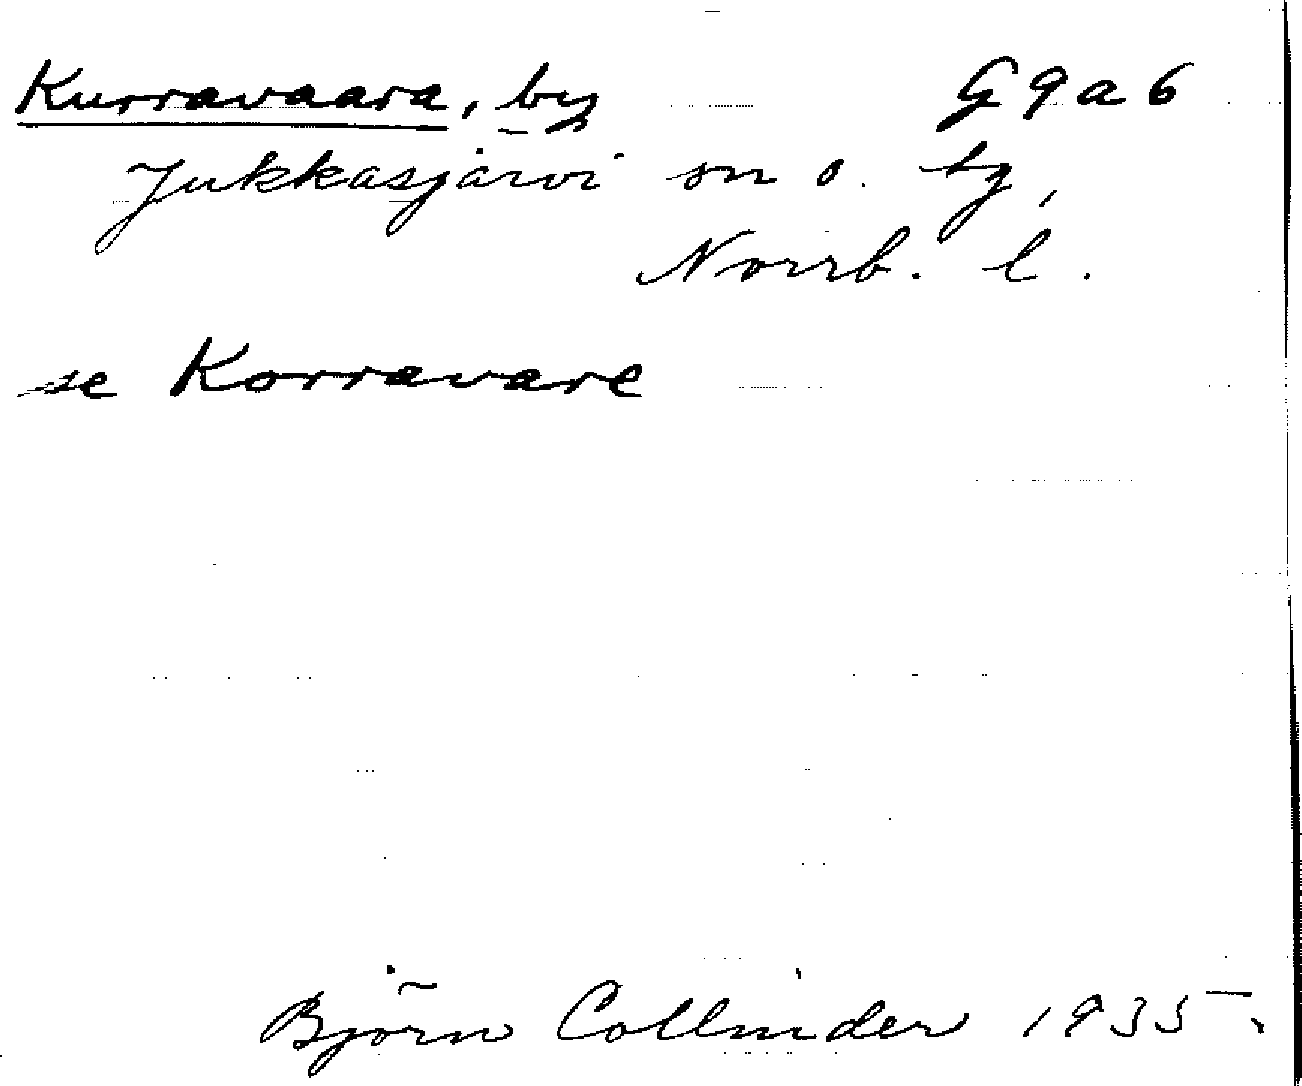 Kurravaara, by G 9 a 6
Jukkasjärvi sn o. tg,
Norrb. l.
se Korravare
Björn Collinder 1935.